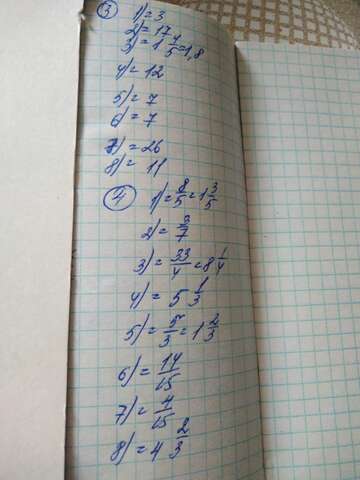 ③ 1) = 3
2) = 17
3) = 1 4/5 = 1,8
4) = 12
5) = 7
6) = 7
7) = 26
8) = 11
④ 1) = 8/5 = 1 3/5
2) = 3/7
3) = 33/4 = 8 1/4
4) = 5 1/3
5) = 5/3 = 1 2/3
6) = 14/15
7) = 4/15
8) = 4 2/3